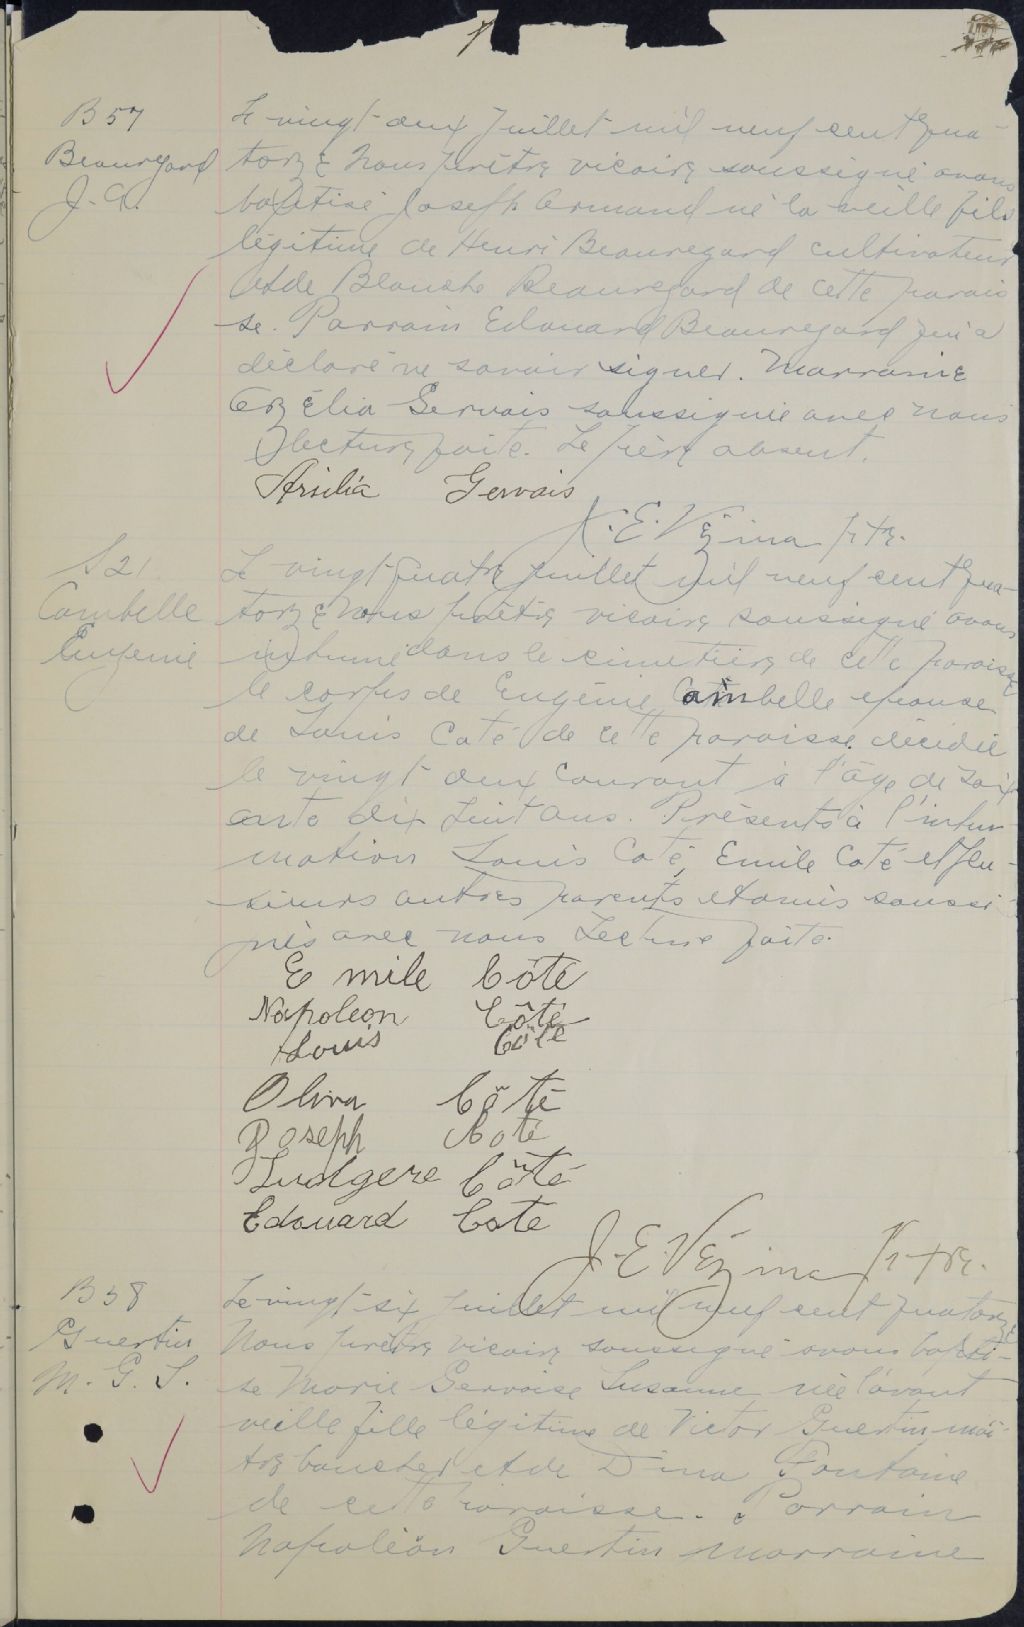 B 57
Beauregard
J. A.
Le vingt deux Juillet mil neuf cent qua-
torze Nous prêtre vicaire soussigné avons
baptisé Joseph Armand né la veille fils
légitime de Henri Beauregard cultivateur
et de Blanche Beauregard de cette parois
se. Parrain Edouard Beauregard qui a
déclaré ne savoir signer. Marraine
Gervais soussignée avec nous
lecture faite. Le père absent.
Arsilia Gervais
J. E. Vézina ptr.
S 21
Cambelle
Eugenie
Le vingt-quatre juillet mil neuf cent qua-
torze Nous prêtre vicaire soussigné avons
inhumé dans le cimetière de cette paroisse
le corps de Eugénie Cambelle épouse
de Louis Coté de cette paroisse décédée
le vingt deux courant à l'âge de soix
ante dix huit ans. Présents à l'inhu
mation Louis Coté, Emile Coté et plu-
sieurs autres parents et amis soussi
gnés avec nous Lecture faite.
Emile Côté
Napoleon Côté
Louis Côté
Oliva Côté
Joseph Coté
Ludgere Côté
Edouard Cote
J. E. Vézina Ptre.
B 58
Guertin
M. G. S.
Le vingt-six Juillet mil neuf cent quatorze
Nous prêtre vicaire soussigné avons bapti-
sé Marie Gervaise Susanne née l'avant
veille fille légitime de Victor Guertin maî-
tre boucher et de Dina Fontaine
de cette paroisse. Parrain
Napoléon Guertin marraine